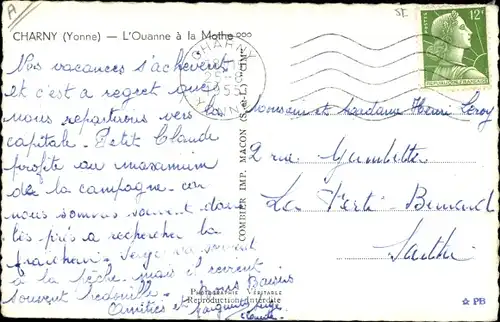 A
CHARNY (Yonne) — L'Ouanne à la Mothe
SE
POSTES 12F
CHARNY
25-8
1955
YONNE
Nos vacances s'achèvent
et c'est à regret que
nous repartirons vers la
capitale. Petit Claude
profite au maximum
de la campagne car
nous sommes souvent dans
les prés à rechercher la
fraîcheur. Serge va souvent
à la pêche mais il revient
souvent bredouille. Bons Baisers
Amitiés et
Marguerite Serge
Claude
Monsieur et Madame Henri Leroy
2 rue Gambetta
La Ferté-Bernard
Sarthe
COMBIER IMP. MACON (S.-et-L.) "CIM"
PHOTOGRAPHIE VÉRITABLE
Reproduction Interdite
PB